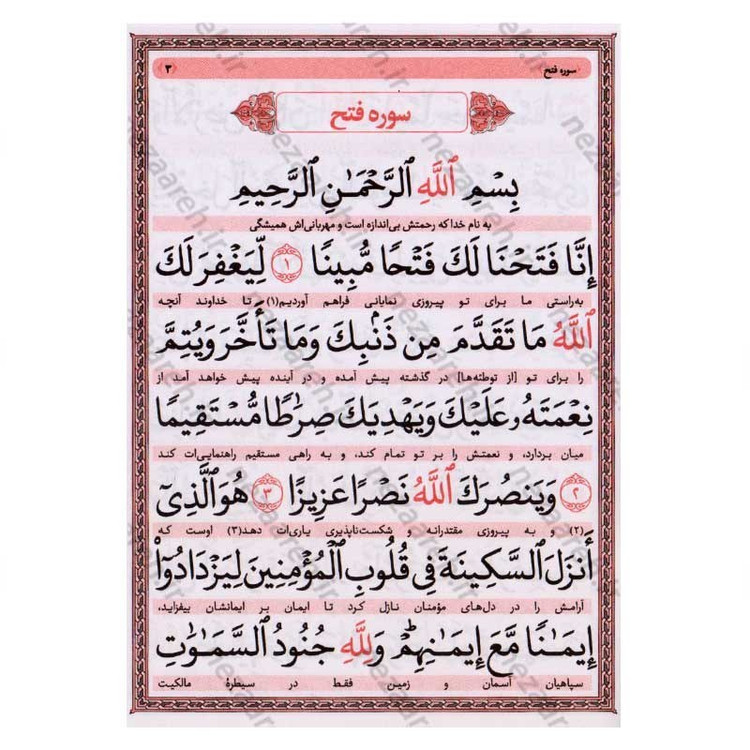 سوره فتح ۳
سوره فتح
بِسْمِ ٱللَّهِ ٱلرَّحْمَـٰنِ ٱلرَّحِيمِ
به نام خدا که رحمتش بی‌اندازه است و مهربانی‌اش همیشگی
إِنَّا فَتَحْنَا لَكَ فَتْحًا مُّبِينًا ۱ لِّيَغْفِرَ لَكَ
به‌راستی ما برای تو پیروزی نمایانی فراهم آوردیم(۱) تا خداوند آنچه
ٱللَّهُ مَا تَقَدَّمَ مِن ذَنۢبِكَ وَمَا تَأَخَّرَ وَيُتِمَّ
را برای تو [از توطئه‌ها] در گذشته پیش آمده و در آینده پیش خواهد آمد از
نِعْمَتَهُۥ عَلَيْكَ وَيَهْدِيَكَ صِرَٰطًا مُّسْتَقِيمًا
میان بردارد، و نعمتش را بر تو تمام کند، و به راهی مستقیم راهنمایی‌ات کند
۲ وَيَنصُرَكَ ٱللَّهُ نَصْرًا عَزِيزًا ۳ هُوَ ٱلَّذِىٓ
(۲) و به پیروزی مقتدرانه و شکست‌ناپذیری یاری‌ات دهد(۳) اوست که
أَنزَلَ ٱلسَّكِينَةَ فِى قُلُوبِ ٱلْمُؤْمِنِينَ لِيَزْدَادُوٓا۟
آرامش را در دل‌های مؤمنان نازل کرد تا ایمان بر ایمانشان بیفزاید،
إِيمَـٰنًا مَّعَ إِيمَـٰنِهِمْ وَلِلَّهِ جُنُودُ ٱلسَّمَـٰوَٰتِ
سپاهیان آسمان و زمین فقط در سیطرهٔ مالکیت
nezaareh.ir